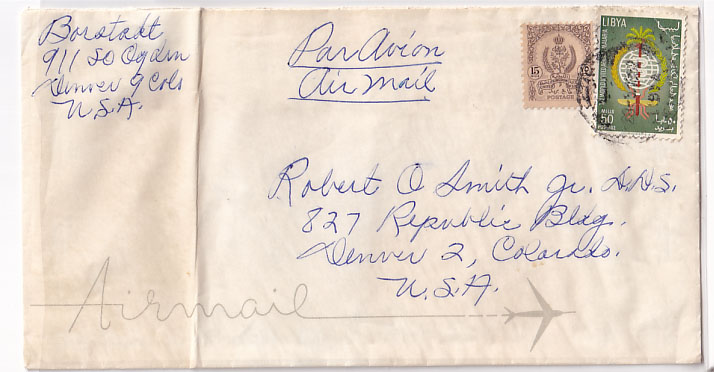 Borstadt
911 So Ogden
Denver 9 Colo
U.S.A.
Par Avion
Air Mail
15
POSTAGE
LIBYA
MILLS
50
Robert O Smith Jr. D.D.S.
827 Republic Bldg.
Denver 2, Colorado.
U.S.A.
Airmail